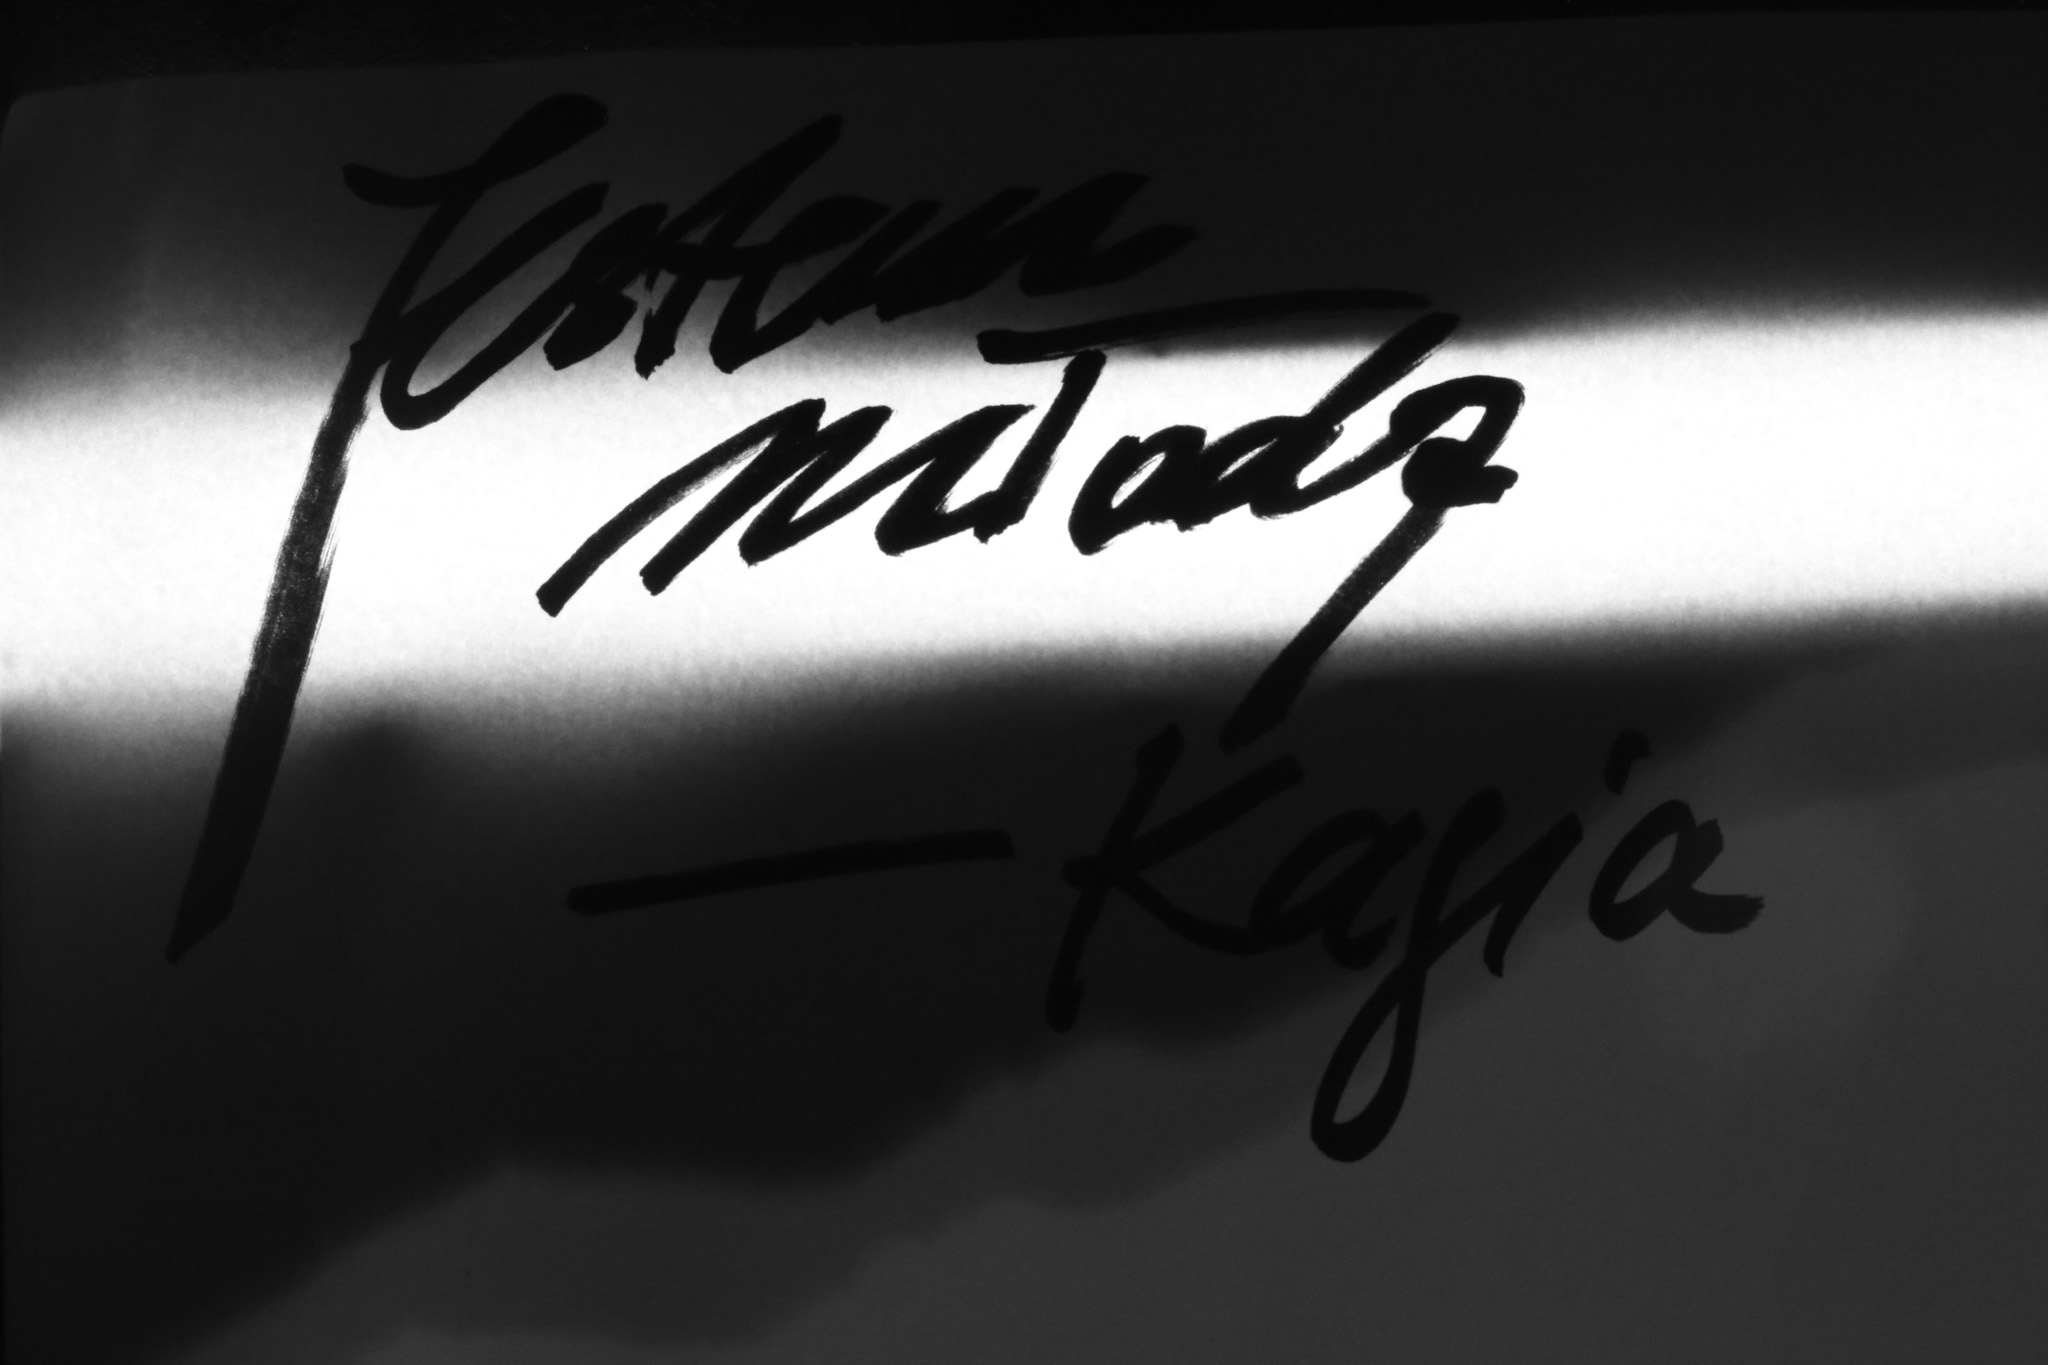 Jestem
metodą
— Kasia